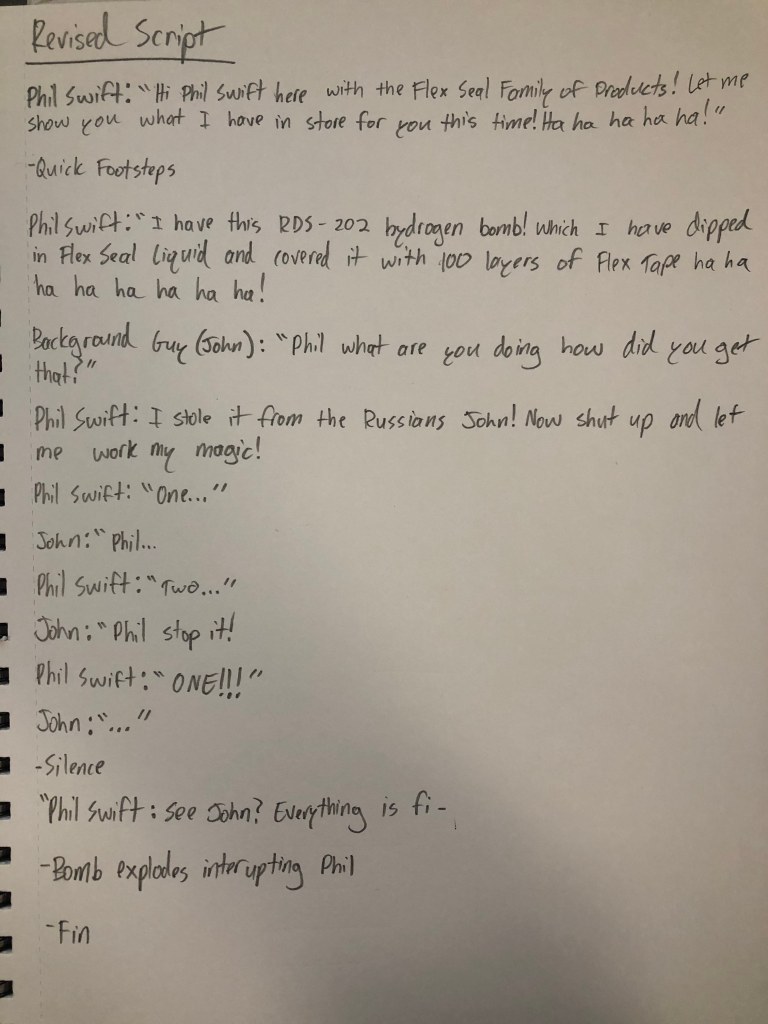 Revised Script
Phil Swift: "Hi Phil Swift here with the Flex Seal Family of Products! Let me
show you what I have in store for you this time! Ha ha ha ha ha!"
-Quick Footsteps
Phil Swift: "I have this RDS-202 hydrogen bomb! Which I have dipped
in Flex Seal liquid and covered it with 100 layers of Flex Tape ha ha
ha ha ha ha ha ha!
Background Guy (John): "Phil what are you doing how did you get
that?"
Phil Swift: I stole it from the Russians John! Now shut up and let
me work my magic!
Phil Swift: "One..."
John: "Phil...
Phil Swift: "Two..."
John: "Phil stop it!
Phil Swift: "ONE!!!"
John: "..."
-Silence
"Phil Swift: See John? Everything is fi-
-Bomb explodes interupting Phil
-Fin